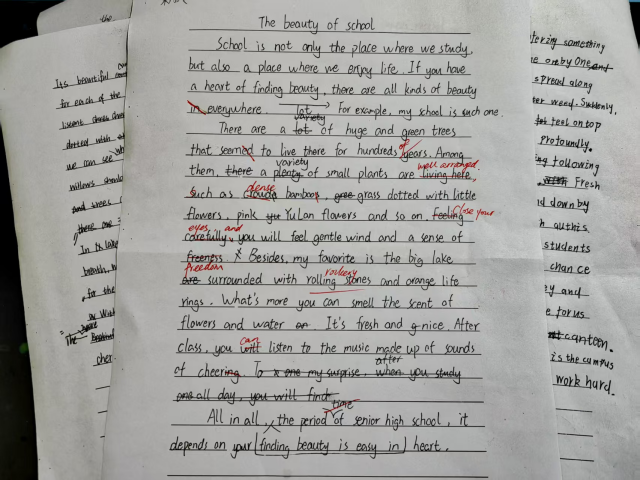 The beauty of school
School is not only the place where we study,
but also a place where we enjoy life. If you have
a heart of finding beauty, there are all kinds of beauty
in everywhere. For example, my school is such one.
lot
variety
There are a lot of huge and green trees
that seemed to live there for hundreds of years. Among
variety
well arranged.
them, there a plenty of small plants are living here,
dense
such as clouds bamboos, gree grass dotted with little
flowers, pink yu YuLan flowers and so on. feeling close your
eyes, and
carefully, you will feel gentle wind and a sense of
freeness. Besides, my favorite is the big lake
freedom
rockery
are surrounded with rolling stones and orange life
rings. What's more you can smell the scent of
flowers and water on. It's fresh and g nice. After
can
class, you will listen to the music made up of sounds
after
of cheering. To my surprise, when you study
one all day, you will find
time
All in all, the period of senior high school, it
depends on your finding beauty is easy in heart.
the
Its beautiful
for each of the
dotted with
we can see
willows
and trees
there are
In its lake
breath,
for the
The
cher
tering something
one by One and
spread along
Suddenly,
feel on top
profoundly.
following
Fresh
d down by
authis.
students
chance
and
for us
canteen.
is the campus
work hard.